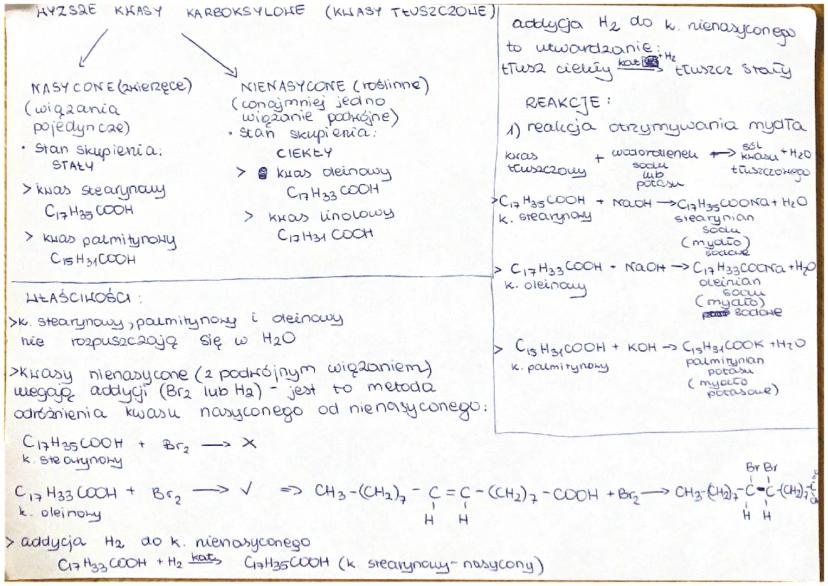 WYŻSZE KWASY KARBOKSYLOWE (KWASY TŁUSZCZOWE)
NASYCONE (zwierzęce)
(wiązania
pojedyncze)
• stan skupienia:
STAŁY
> kwas stearynowy
C17H35COOH
> kwas palmitynowy
C15H31COOH
NIENASYCONE (roślinne)
(conajmniej jedno
wiązanie podwójne)
• stan skupienia:
CIEKŁY
> kwas oleinowy
C17H33COOH
> kwas linolowy
C17H31COOH
addycja H2 do k. nienasyconego
to utwardzanie:
tłusz ciekły kat +H2 → tłuszcz stały
REAKCJE:
1) reakcja otrzymywania mydła
kwas tłuszczowy + wodorotlenek sodu lub potasu → sól kwasu tłuszczowego + H2O
> C17H35COOH + NaOH → C17H35COONa + H2O
k. stearynowy stearynian
sodu
(mydło)
sodowe
> C17H33COOH + NaOH → C17H33COONa + H2O
k. oleinowy oleinian
sodu
(mydło)
sodowe
> C15H31COOH + KOH → C15H31COOK + H2O
k. palmitynowy palmitynian
potasu
(mydło
potasowe)
WŁAŚCIWOŚCI:
> k. stearynowy, palmitynowy i oleinowy
nie rozpuszczają się w H2O
> kwasy nienasycone (z podwójnym wiązaniem)
ulegają addycji (Br2 lub H2) - jest to metoda
odróżnienia kwasu nasyconego od nienasyconego:
C17H35COOH + Br2 → X
k. stearynowy
Br Br
C17H33COOH + Br2 → ✓ => CH3-(CH2)7-C=C-(CH2)7-COOH + Br2 → CH3-(CH2)7-C-C-(CH2)7-C
k. oleinowy H H H H
> addycja H2 do k. nienasyconego
C17H33COOH + H2 kat. → C17H35COOH (k. stearynowy - nasycony)